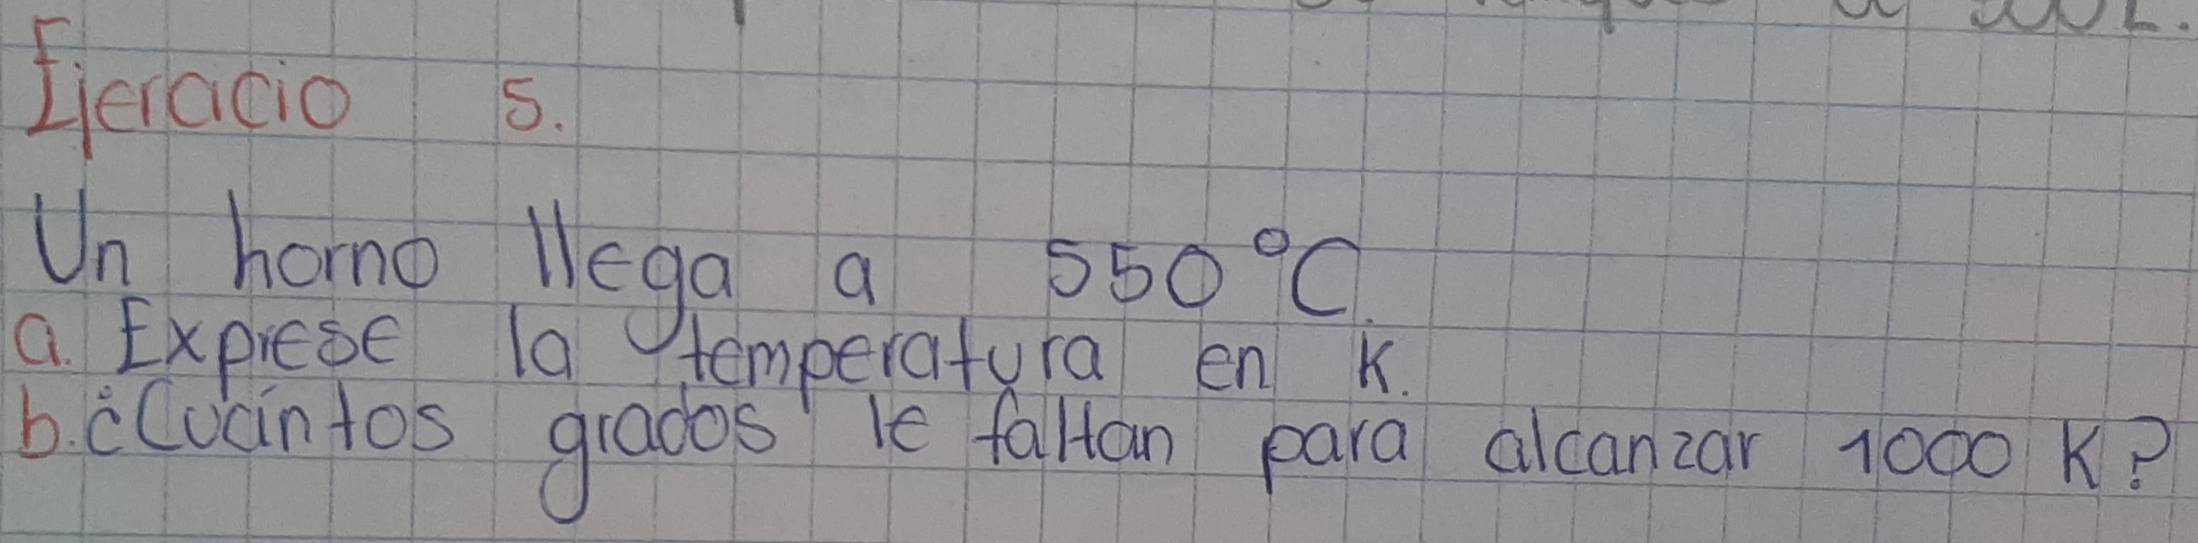 Ejercicio 5.
Un horno llega a 550°C.
a. Exprese la temperatura en K.
b. ¿Cuántos grados le faltan para alcanzar 1000 K?